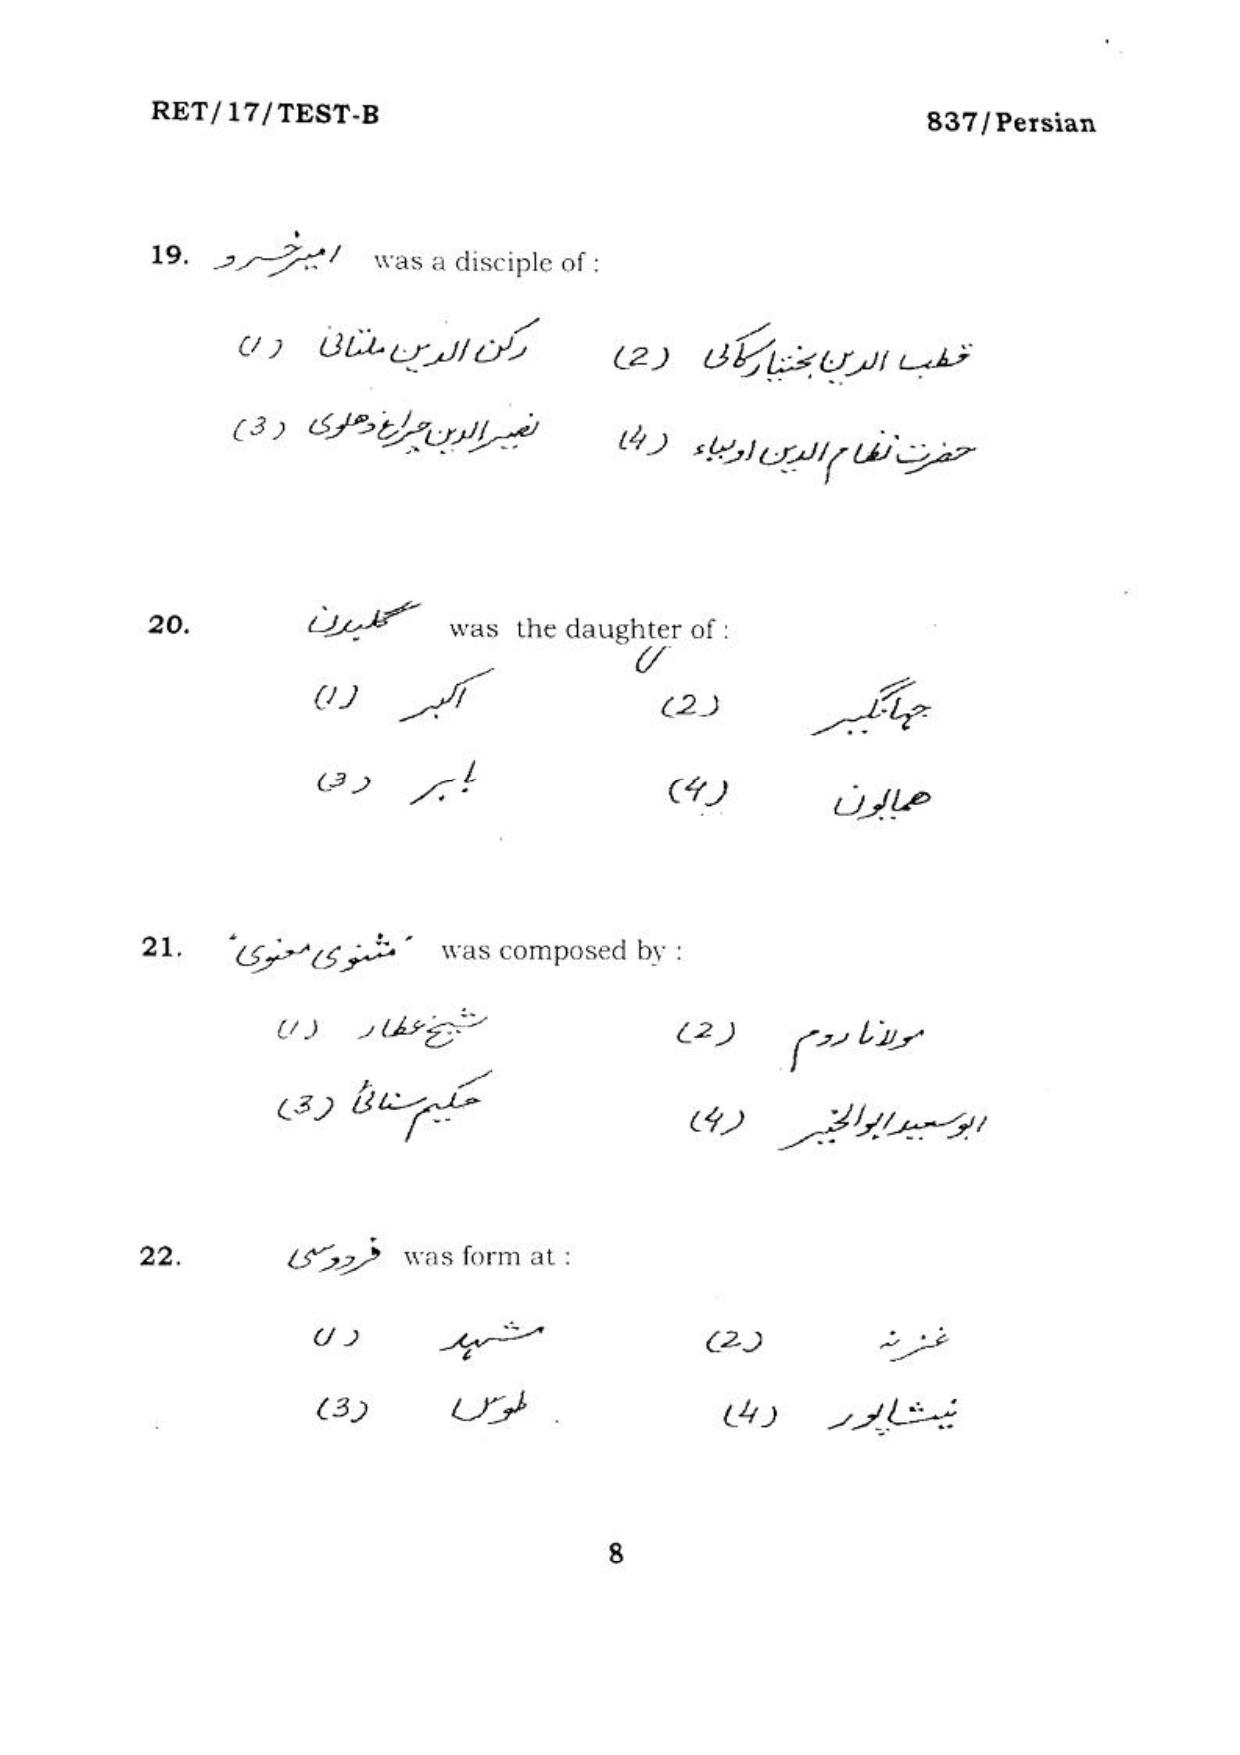 RET/17/TEST-B 837/Persian
19. امیر خسرو was a disciple of :
(1) رکن الدین ملتانی (2) قطب الدین بختیار کاکی
(3) نصیر الدین چراغ دهلوی (4) حضرت نظام الدین اولیاء
20. گلبدن was the daughter of :
(1) اکبر (2) جہانگیر
(3) بابر (4) همایون
21. "مثنوی معنوی" was composed by :
(1) شیخ عطار (2) مولانا روم
(3) حکیم سنائی (4) ابو سعید ابوالخیر
22. فردوسی was form at :
(1) مشہد (2) غزنہ
(3) طوس (4) نیشاپور
8